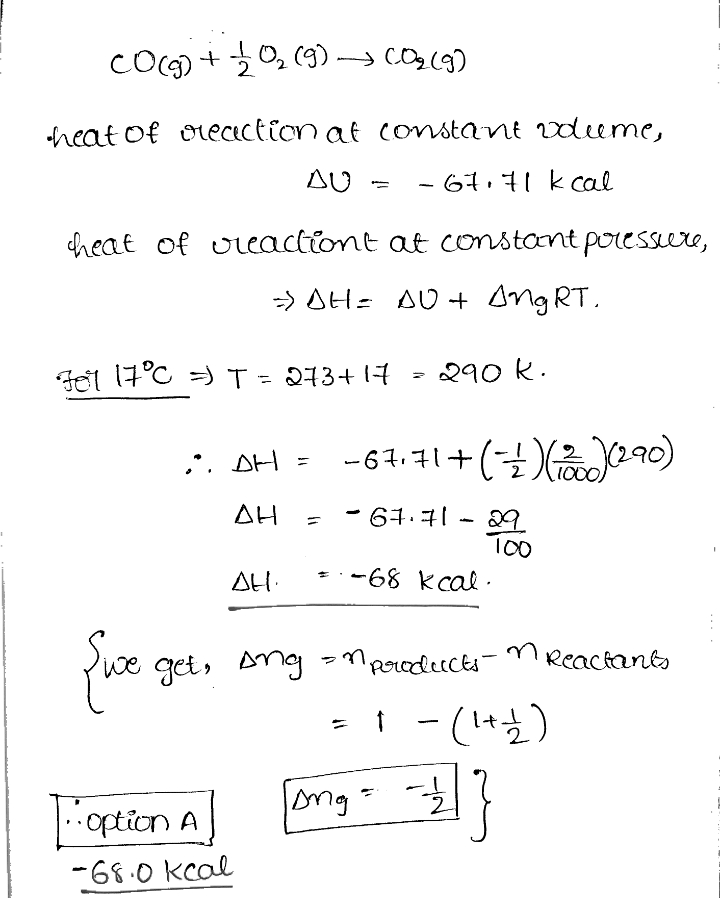 CO(g) + 1/2 O₂ (g) → CO₂(g)
heat of reaction at constant volume,
ΔU = - 67.71 k cal
heat of reactiont at constant pressure,
⇒ ΔH = ΔU + ΔngRT.
For 17°C ⇒ T = 273+17 = 290 K.
∴ ΔH = -67.71 + (-1/2)(2/1000)(290)
ΔH = -67.71 - 29/100
ΔH. = -68 kcal.
{we get, Δng = nproducts - nReactants
= 1 - (1+1/2)
Δng = -1/2 }
∴ option A
-68.0 kcal